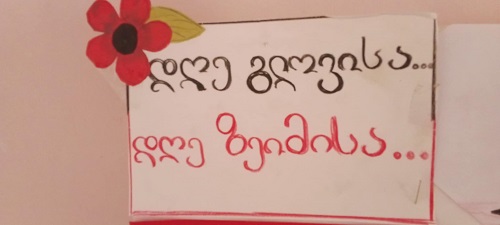 დღე გლოვისა...
დღე ზეიმისა...